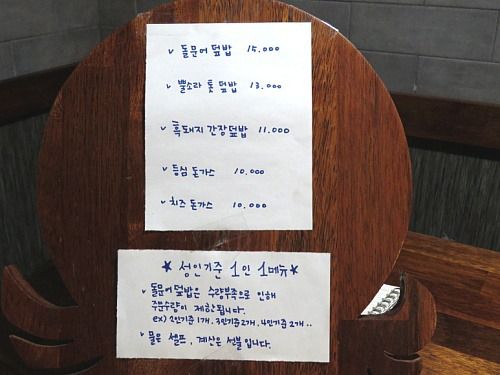 ✓ 돌문어 덮밥 15.000
✓ 뿔소라 톳 덮밥 13.000
✓ 흑돼지 간장덮밥 11.000
✓ 등심 돈가스 10.000
✓ 치즈 돈가스 10.000
★ 성인기준 1인 1메뉴 ★
✓ 돌문어덮밥은 수량부족으로 인해
주문수량이 제한됩니다.
ex) 2인기준 1개, 3인기준 2개, 4인기준 2개..
✓ 물은 셀프, 계산은 선불입니다.